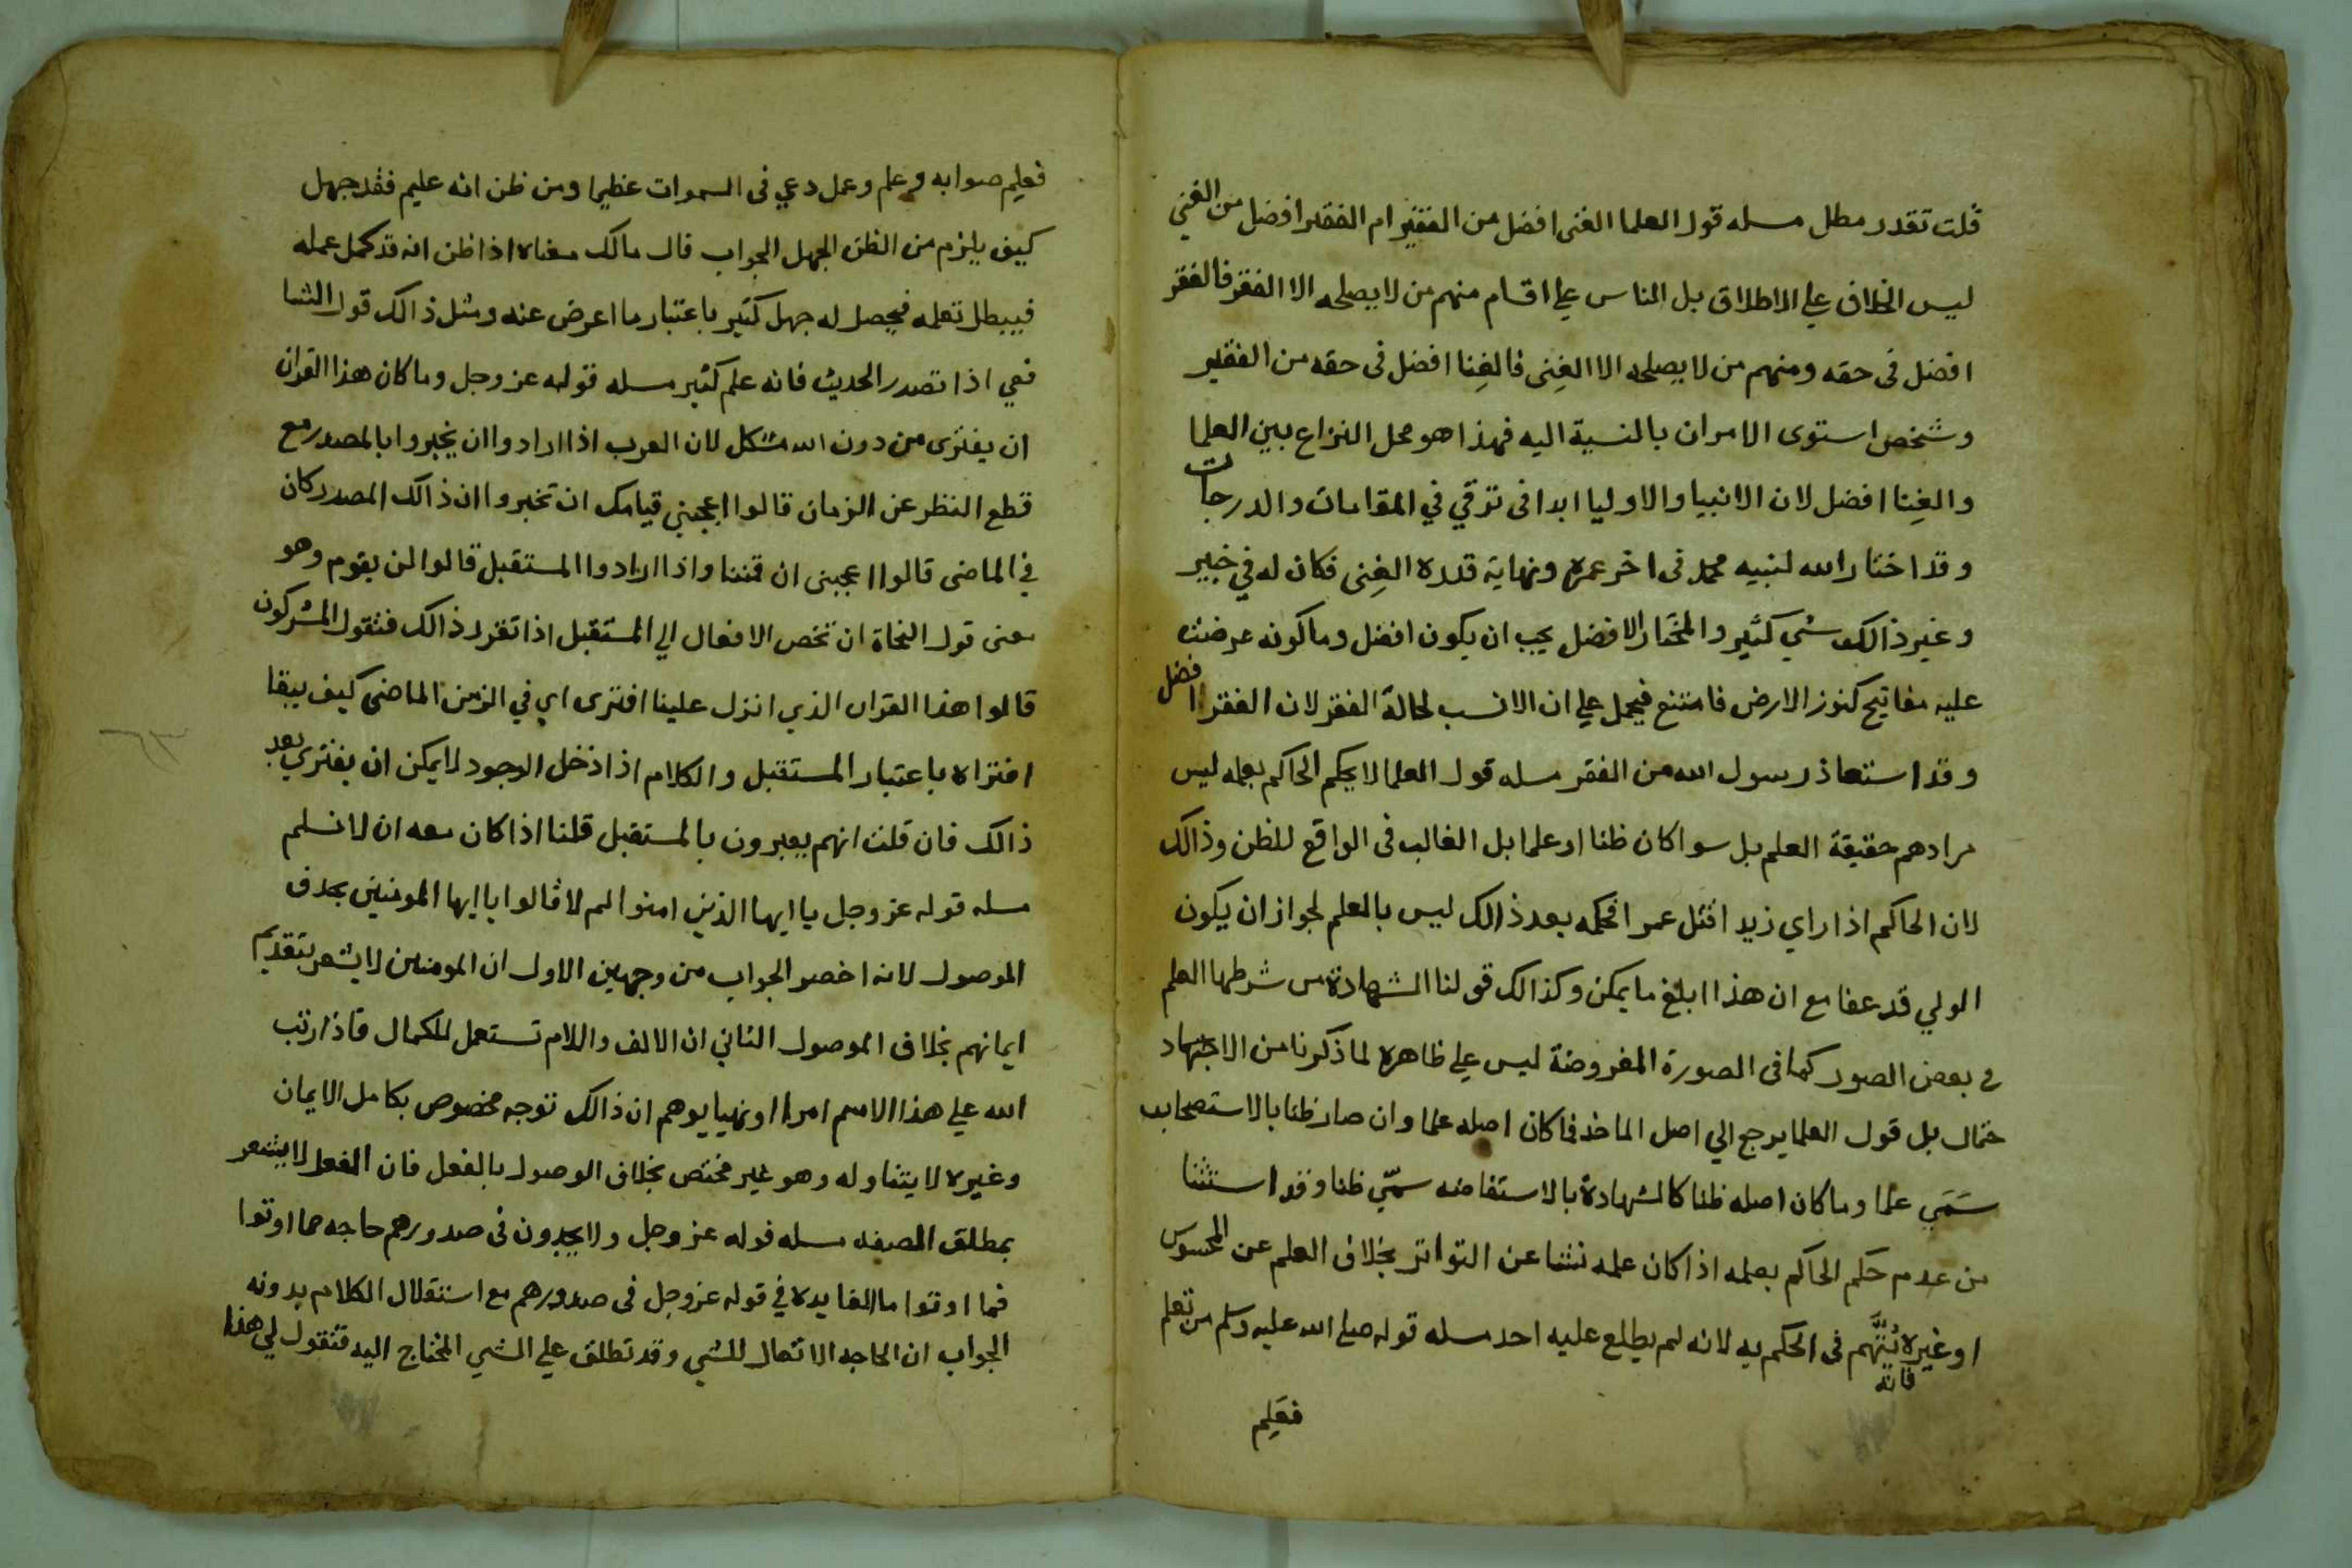 قلت تقدر مطل مسله قول العلما الغنى افضل من الفقير ام الفقير افضل من الغني
ليس الخلاف علي الاطلاق بل الناس علي اقسام منهم من لا يصلحه الا الفقر فالفقر
افضل فى حقه ومنهم من لا يصلحه الا الغِنى فالغِنا افضل فى حقه من الفقير
وشخص استوى الامران بالنسبة اليه فهذا هو محل النزاع بين العلما
والغِنا افضل لان الانبيا والاوليا ابدا فى ترقي في المقامات والدرجات
وقد اختار الله لنبيه محمد فى اخر عمره ونهاية قدره الغِنى فكان له في خيبر
وغير ذالك شي كثير والمختار الافضل يجب ان يكون افضل وما كونه عرضت
عليه مفاتيح كنوز الارض فامتنع فيحمل علي ان الانسب لحالة الفقر لان الفقر افضل
وقد استعاذ رسول الله من الفقر مسله قول العلما لا يحكم الحاكم بعلمه ليس
مرادهم حقيقة العلم بل سوا كان ظنا او علما بل الغالب فى الواقع للظن وذالك
لان الحاكم اذا راي زيد اقتل عمر افحكمه بعد ذالك ليس بالعلم لجواز ان يكون
الولي قد عفا مع ان هذا ابلغ ما يمكن وكذالك قولنا الشهادة من شرطها العلم
في بعض الصور كما فى الصورة المفروضة ليس علي ظاهره لما ذكرنا من الاجتهاد
حتمال بل قول العلما يرجع الي اصل الماخذ فما كان اصله علما وان صار ظنا بالاستصحاب
سَمَي علما وما كان اصله ظنا كالشهادة بالاستفاضه سمّي ظنا وقد استثنا
من عدم حكم الحاكم بعلمه اذا كان علمه نشا عن التواتر بخلاف العلم عن المحسوس
او غيره فانه يُتَّهم فى الحكم به لانه لم يطلع عليه احد مسله قوله صلي الله عليه وسلم من تعلم
فعَلِم
فعلِم صوابه وعلم وعمل دعي فى السموات عظيما ومن ظن انه عليم فقد جهل
كيف يلزم من الظن الجهل الجواب قال مالك معناه اذا ظن انه قد كمل عمله
فيبطل تعلمه فيحصل له جهل كثير باعتبار ما اعرض عنه ومثل ذالك قول الشا
فعي اذا تصدر الحديث فانه علم كثير مسله قوله عز وجل وما كان هذا القران
ان يفترى من دون الله مشكل لان العرب اذا ارادوا ان يخبروا بالمصدر مع
قطع النظر عن الزمان قالوا اعجبني قيامك ان تخبروا ان ذالك المصدر كان
في الماضى قالوا اعجبنى ان قمت واذا ارادوا المستقبل قالوا لن يقوم وهو
معنى قول النحاة ان تخص الافعال الي المستقبل اذا تقرر ذالك فنقول المشركون
قالوا هذا القران الذي انزل علينا افترى اي في الزمن الماضى كيف يبقا
افتراه باعتبار المستقبل والكلام اذا دخل الوجود لا يمكن ان يفتري بعد
ذالك فان قلت انهم يعبرون بالمستقبل قلنا اذا كان معه ان لا نسلم
مسله قوله عز وجل يا ايها الذين امنوا لم لا قالوا يا ايها المومنين بحدف
الموصول لانه اخصر الجواب من وجهين الاول ان المومنين لا يشعر بتقديم
ايمانهم بخلاف الموصول الثاني ان الالف واللام تستعمل للكمال فاذا رتب
الله علي هذا الاسم امرا او نهيا يوهم ان ذالك توجه مخصوص بكامل الايمان
وغيره لا يتناوله وهو غير مختص بخلاف الوصول بالفعل فان الفعل لا يشعر
بمطلق الصفه مسله قوله عز وجل ولا يجدون فى صدورهم حاجه مما اوتوا
فما اوتوا ما الفايدة في قوله عز وجل فى صدورهم مع استقلال الكلام بدونه
الجواب ان الحاجه الاتعال للشي وقد تطلق علي الشي المحتاج اليه فتقول لي هذا